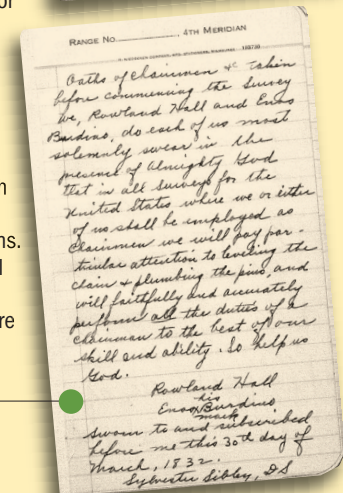 or
n
ns.
l
re
RANGE No. , 4TH MERIDIAN
Oaths of Chainmen &c taken
before commencing the Survey
We, Rowland Hall and Enos
Burdino, do each of us most
solemnly swear in the
presence of Almighty God
that in all surveys for the
United States where we or either
of us shall be employed as
Chainmen we will pay par-
ticular attention to leveling the
chain & plumbing the pins, and
will faithfully and accurately
perform all the duties of a
chainman to the best of our
skill and ability. So help us
God.
Rowland Hall
his
Enos X Burdino
mark
Sworn to and subscribed
before me this 30th day of
March, 1832.
Sylvester Sibley, DS